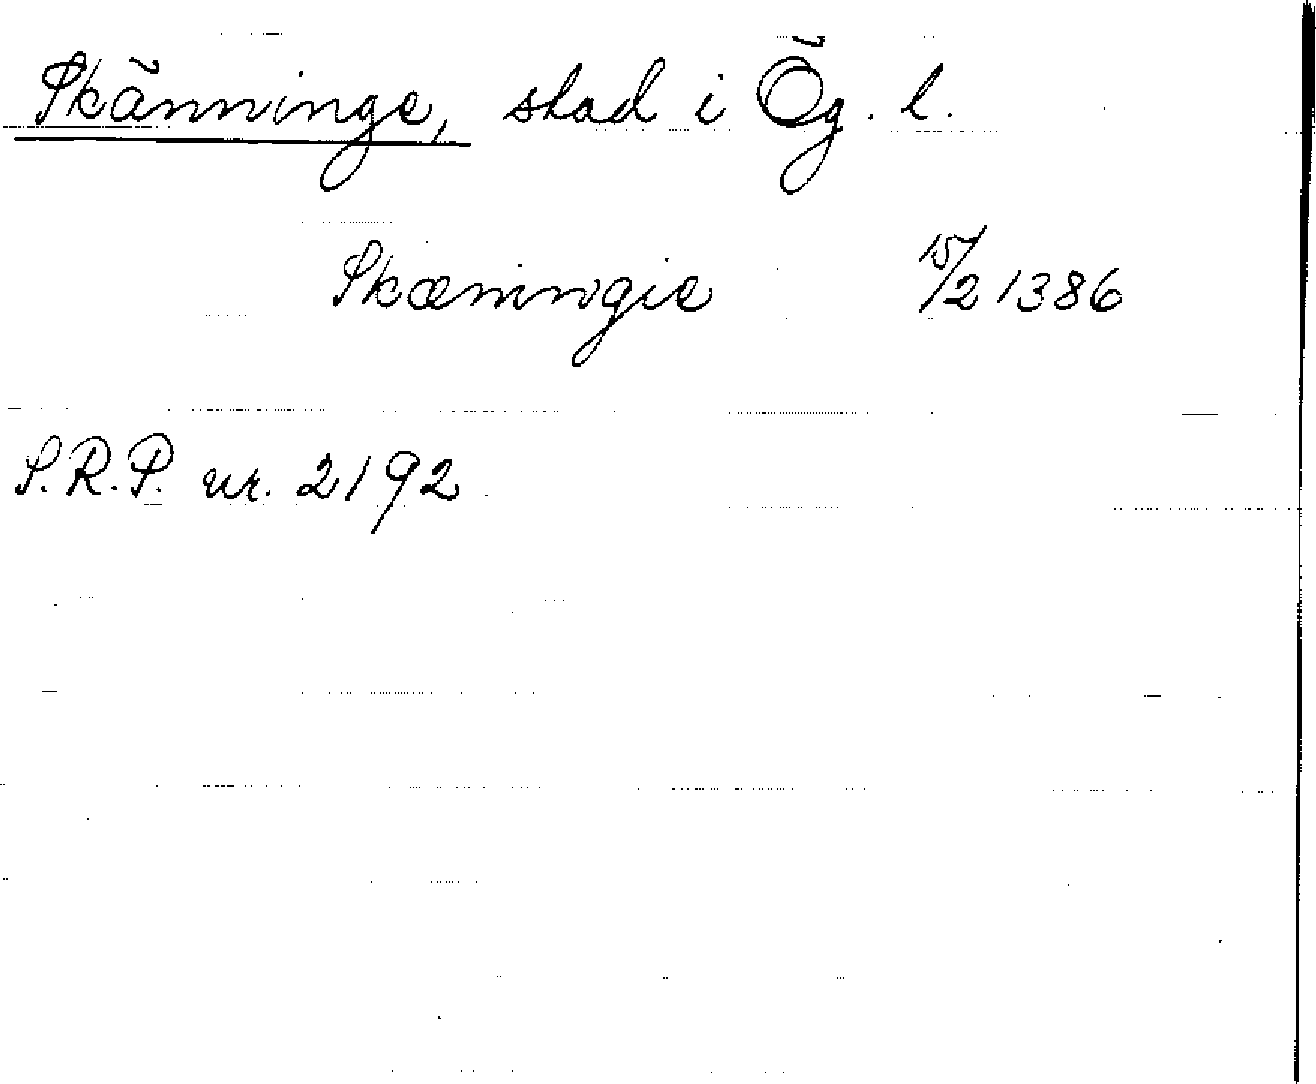 Skänninge, stad i Ög. l.
Skæningie 15/2 1386
S.R.P. nr. 2192